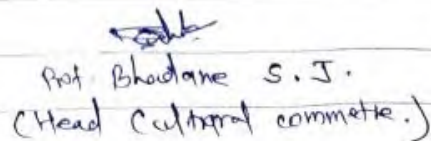 Prof. Bhadane S. J.
(Head Cultural committe.)